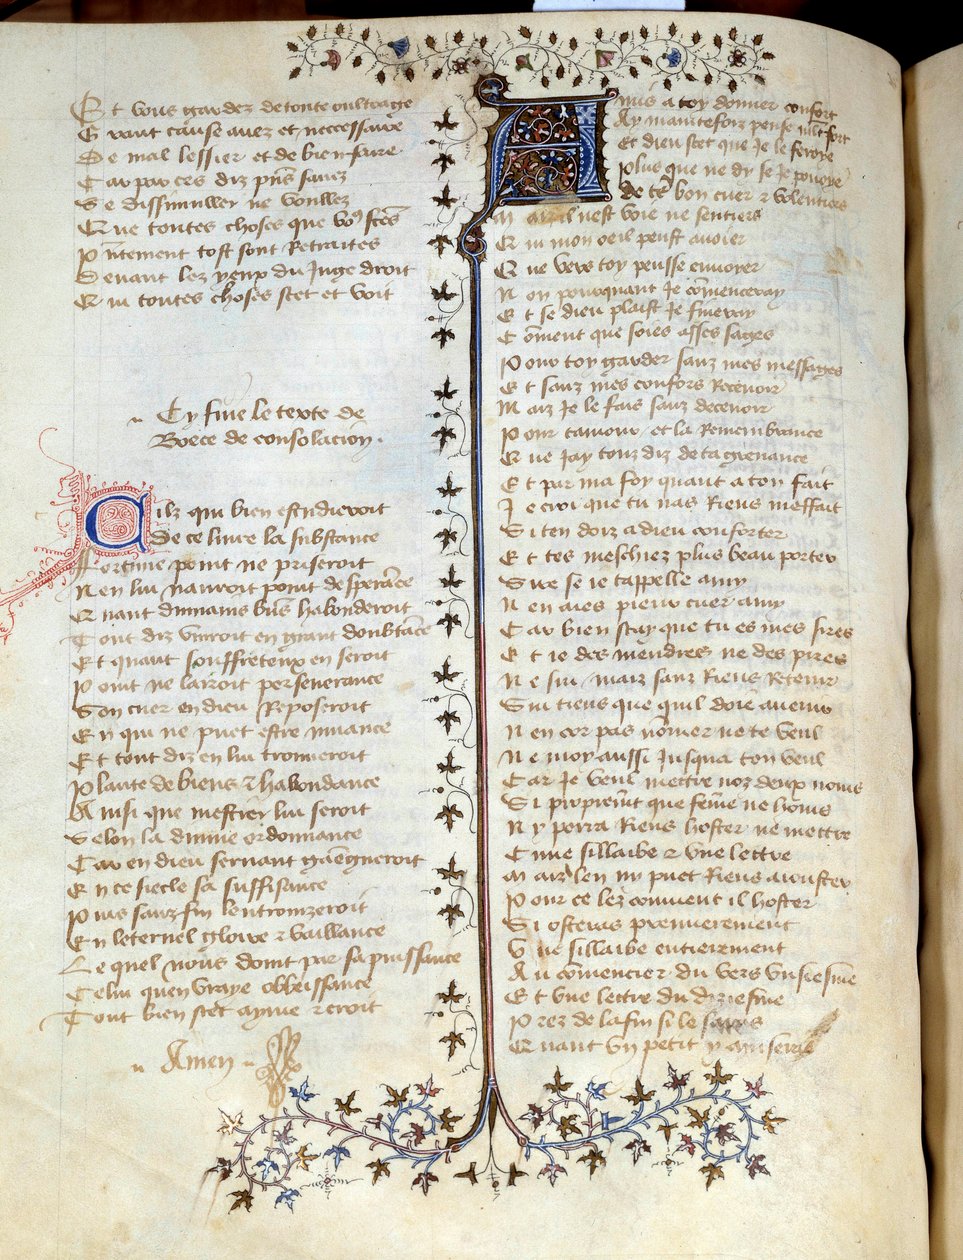 Et vous gardez de toute oultrage
Grant cause avez et neccessaire
De mal lessier et de bien faire
Car par ces diz prins sanz
Se dissimuller ne voullez
Que toutes choses que vo9 fctes
Prntement tost sont Retraites
Devant lez yeux du Juge droit
Qui toutes choses scet et voit
Cy fine le texte de
Boece de consolacion.
Cilz qui bien estudieroit
de ce livre la substance
Fortune point ne priseroit
N en lui nauroit point desperance
Quant dmnains bns habonderoit
Tout diz vivroit en grant doubtance
Et quant souffreteux en seroit
Point ne lairoit perseverance
Son cuer en dieu Reposeroit
En qui ne puet estre muance
Et tout diz en lui trouveroit
Plante de biens et habondance
Ainsi que mestier lui seroit
Selon la divine ordonnance
Car en dieu servant gaegneroit
En ce siecle sa suffisance
Puis sanz fin lentronizeroit
En leternel gloire et vaillance
Le quel nous doint par sa puissance
Celui quen vraye obbeissance
Tout bien scet ayme et croit
Amen
Amis a toy donner confort
Ay maintefoiz pense mlt fort
Et dieu scet que Je le feroye
Plus que ne dy se Je pouoye
De tres bon cuer et volentiers
Mais il nest voie ne sentiers
Qui mon oeil peust avoier
Que vers toy peusse envoyer
Non pourquant Je comenceray
Et se dieu plaist Je fineray
Coment que soies asses sages
Pour toy garder sanz mes messages
Et sanz mes confors Recevoir
Maiz Je le fais sanz decevoir
Pour tamour et la Remembrance
Que Jay touz diz de ta grevance
Et par ma foy quant a ton fait
Je croi que tu nas Riens meffait
Si ten doiz a dieu conforter
Et tes meschiez plus beau porter
Sur se ie tappelle amy
N en aies pieur cuer a my
Car bien scay que tu es mes sires
Et ie des mendres ne des pires
Ne sui maiz sanz Riens Retenir
Sui tiens que quil doie avenir
N encor pas nomer ne te veul
Ne moy aussi Jusqua ton veul
Car Je veul mettre noz deux noms
Si proprement que feme ne homs
N y porra Riens hoster ne mettre
C une sillaibe et une lettre
Maiz len ny puet Riens aiouster
Pour ce lez convient il hoster
Si osteras premierement
Une sillaibe entierement
Au comencier du vers
Et une lettre du diziesme
Prez de la fin si le
Quant un petit y